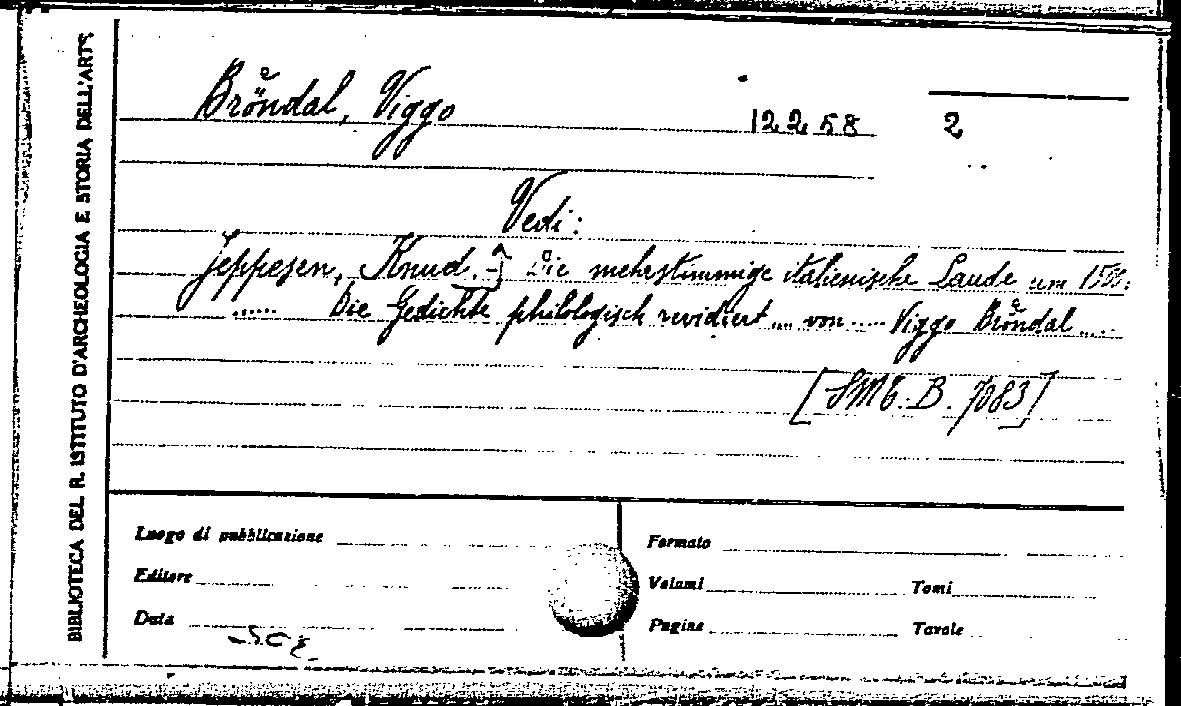 BIBLIOTECA DEL R. ISTITUTO D'ARCHEOLOGIA E STORIA DELL'ARTE
Bröndal, Viggo 12258 2
Vedi:
Jeppesen, Knud. Die mehrstimmige italienische Laude um 1500:
...... Die Gedichte philologisch revidiert .... von ..... Viggo Bröndal .....
[SM6.B. 7083]
Luogo di pubblicazione
Formato
Editore
Volumi Tomi
Data
Pagine Tavole